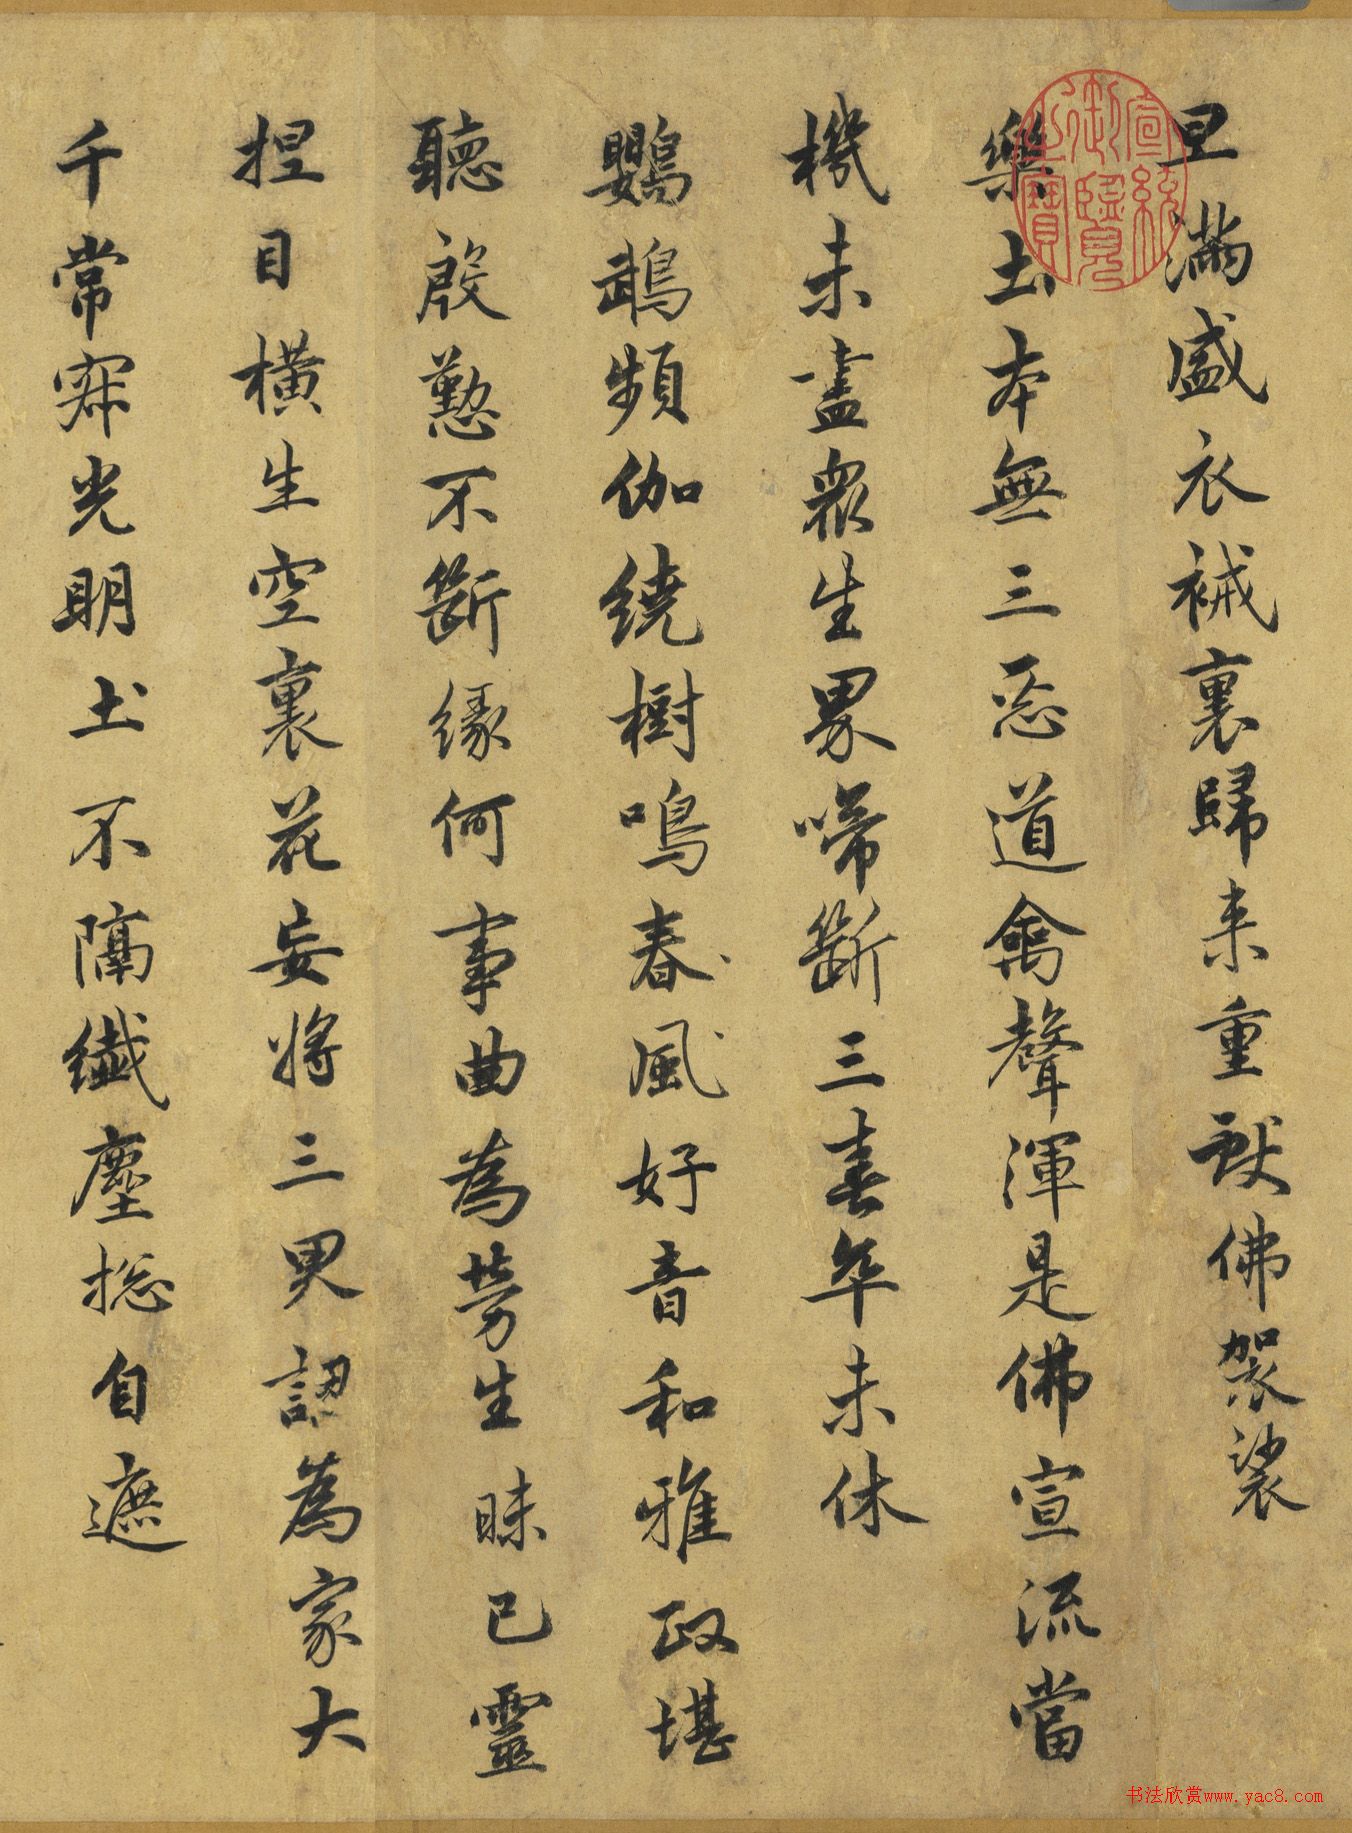 旦滿盛衣祴裏歸來重獻佛袈裟
樂土本無三惡道禽聲渾是佛宣流當
機未盡眾生界啼斷三春卒未休
鸚鵡頻伽繞樹鳴春風好音和雅政堪
聽慇懃不斷緣何事曲為勞生昧己靈
捏目橫生空裏花妄將三界認為家大
千常寂光明土不隔纖塵捴自遮
宣統御覽之寶
书法欣赏www.yac8.com